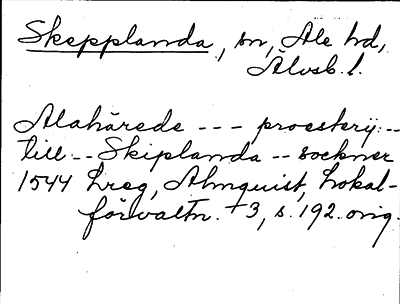 Skepplanda, sn, Ale hd,
Älvsb. l.
Alahärede --- proesterij --
till -- Skiplanda -- sockner
1544 Lreg, Almquist, Lokal-
förvaltn. +3, s. 192. orig.